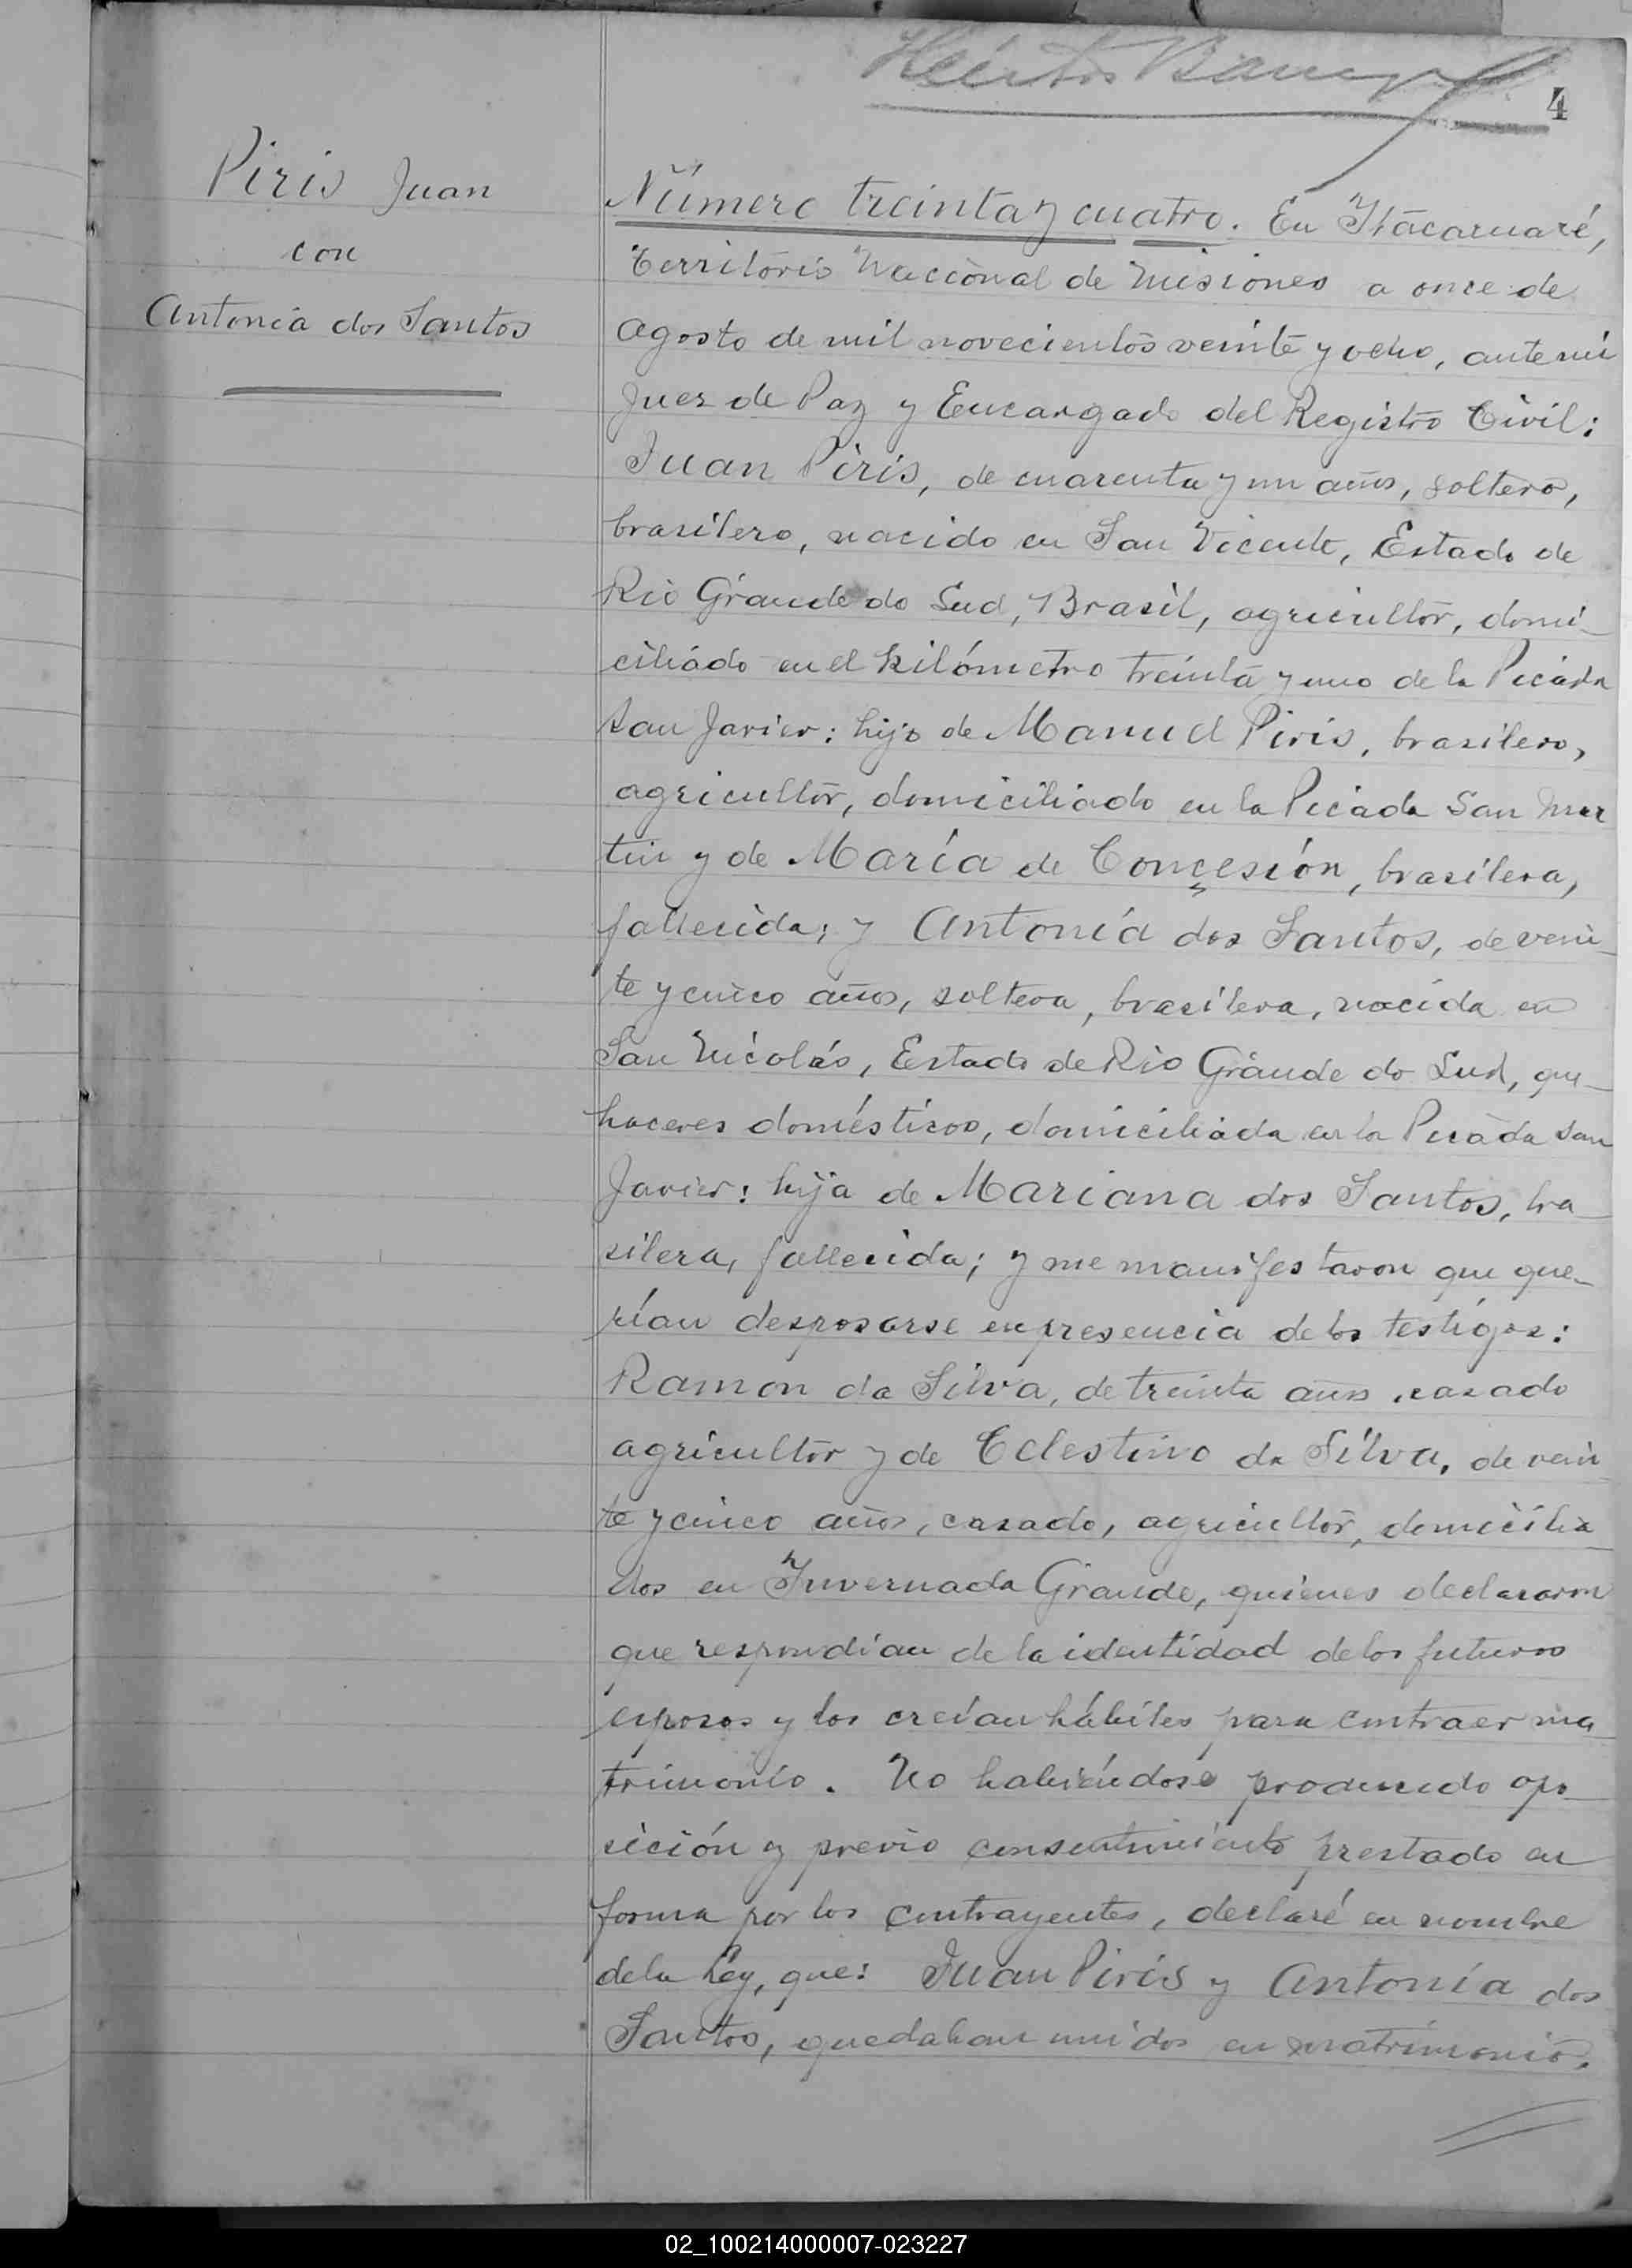 4
Piris Juan
con
Antonia dos Santos
Número treinta y cuatro. En Itacaruaré,
Territorio Nacional de Misiones a once de
Agosto de mil novecientos veinte y ocho, ante mi
Juez de Paz y Encargado del Registro Civil:
Juan Piris, de cuarenta y un años, soltero,
brasilero, nacido en San Vicente, Estado de
Rio Grande do Sud, Brasil, agricultor, domi-
ciliado en el kilómetro treinta y uno de la Picada
San Javier: hijo de Manuel Piris, brasilero,
agricultor, domiciliado en la Picada San Mar
tin y de María de Conçesión, brasilera,
fallecida; y Antonia dos Santos, de vein-
te y cinco años, soltera, brasilera, nacida en
San Nicolás, Estado de Rio Grande do Sud, que-
haceres domésticos, domiciliada en la Picada San
Javier: hija de Mariana dos Santos, bra-
silera, fallecida; y me manifestaron que que-
rían desposarse en presencia de los testigos:
Ramon da Silva, de treinta años, casado
agricultor y de Celestino da Silva, de vein-
te y cinco años, casado, agricultor, domicilia-
dos en Invernada Grande, quienes declararon
que respondían de la identidad de los futuros
esposos y los creían hábiles para contraer ma-
trimonio. No habiéndose producido opo-
sición y previo consentimiento prestado en
forma por los contrayentes, declaré en nombre
de la Ley, que: Juan Piris y Antonia dos
Santos, quedaban unidos en matrimonio.
02_100214000007-023227